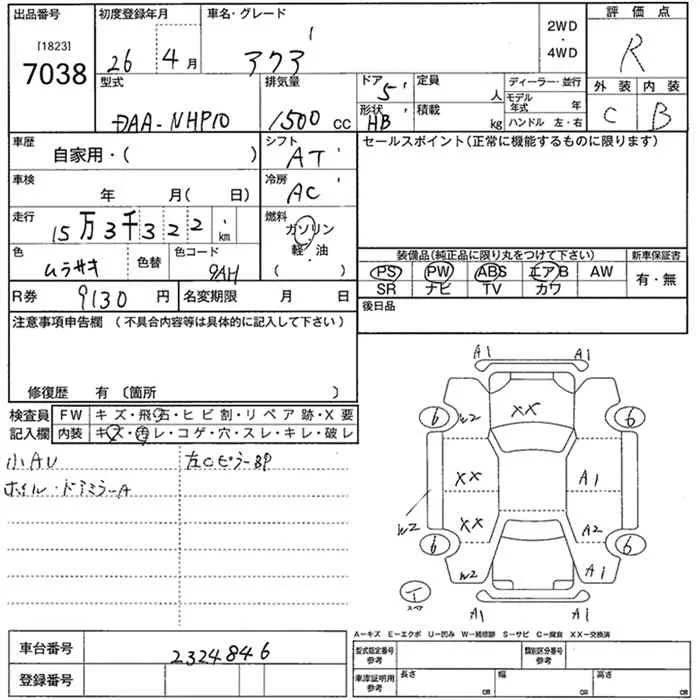 出品番号 初度登録年月 車名・グレード 2WD・4WD 評価点
[1823]
7038 26 4月 アクア R
型式 排気量 ドア 5 定員 人 ディーラー・並行 外装 内装
DAA-NHP10 1500 cc 形状 HB 積載 kg モデル年式 年 C B
ハンドル 左・右
車歴 自家用・( ) シフト AT セールスポイント(正常に機能するものに限ります)
車検 年 月( 日) 冷房 AC
走行 15万3千322 km 燃料 ガソリン
軽・油
( )
色 ムラサキ 色替 色コード 9AH 装備品(純正品に限り丸をつけて下さい) 新車保証書
PS PW ABS エアB AW 有・無
SR ナビ TV カワ
R券 9130 円 名変期限 月 日 後日品
注意事項申告欄 (不具合内容等は具体的に記入して下さい)
修復歴 有〔箇所 〕
検査員 FW キズ・飛石・ヒビ割・リペア跡・X要
記入欄 内装 キズ・汚レ・コゲ・穴・スレ・キレ・破レ
小AU 左Cピラー BP
ホイル・ドアミラーA
A1 A1
6 W2 XX 6
XX A1
W2 XX A2
6 6
W2 A1
T
スペア
A1 A1
A−キズ E−エクボ U−凹み W−補修跡 S−サビ C−腐食 XX−交換済
車台番号 2324846
登録番号
型式指定番号 参考 類別区分番号 参考
車庫証明用 参考 長さ cm 幅 cm 高さ cm